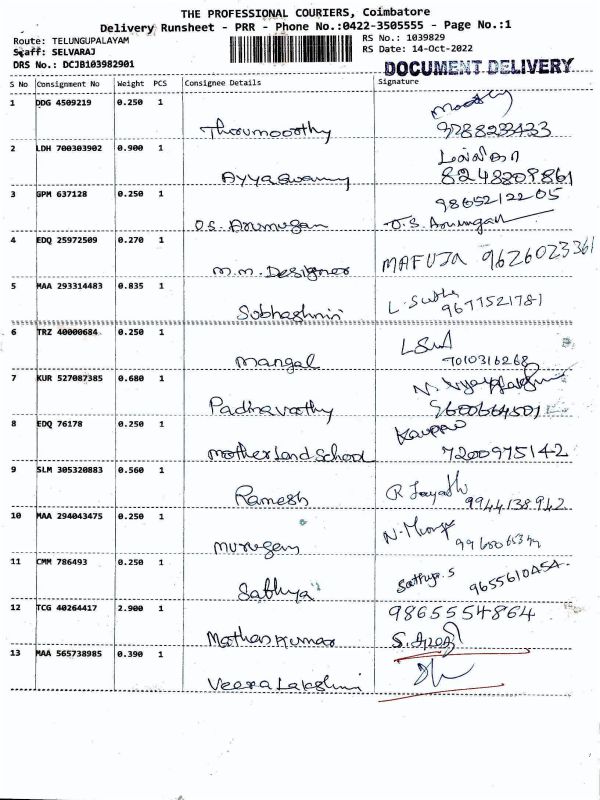 THE PROFESSIONAL COURIERS, Coimbatore
Delivery Runsheet - PRR - Phone No.:0422-3505555 - Page No.:1
Route: TELUNGUPALAYAM RS No.: 1039829
Staff: SELVARAJ RS Date: 14-Oct-2022
DRS No.: DCJB103982901 DOCUMENT DELIVERY
S No Consignment No Weight PCS Consignee Details Signature
1 DDG 4509219 0.250 1
Thorumoorthy 9788233433
2 LDH 700303902 0.900 1
Ayyaswamy 8248809861
3 GPM 637128 0.250 1 9865212205
O.S. Arumugan O.S. Arumugan
4 EDQ 25972509 0.270 1 MAFUJA 9626023361
M.M. Designer
5 MAA 293314483 0.835 1
Subhashini 9677521781
6 TRZ 40000684 0.250 1
Mangal 7010316268
7 KUR 527087385 0.680 1
Padhavathy 9600664501
8 EDQ 76178 0.250 1
Motherland School 7200975142
9 SLM 305320883 0.560 1
Ramesh 9944138942
10 MAA 294043475 0.250 1
Murugan
11 CMM 786493 0.250 1 Sathya.S 9655610454.
Sathya
12 TCG 40264417 2.900 1 9865554864
Mathan Kumar
13 MAA 565738985 0.390 1
Veera Lakshmi